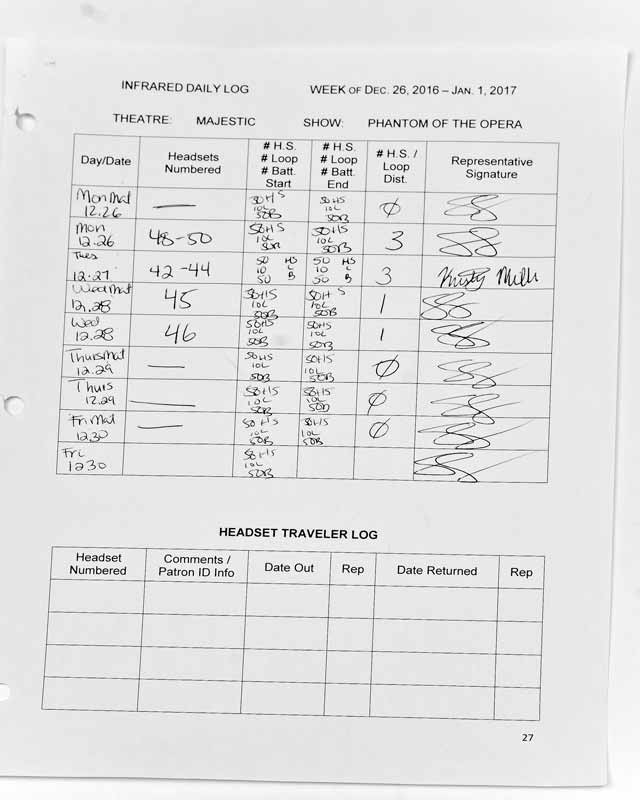 INFRARED DAILY LOG WEEK OF DEC. 26, 2016 – JAN. 1, 2017
THEATRE: MAJESTIC SHOW: PHANTOM OF THE OPERA
Day/Date Headsets Numbered # H.S. # Loop # Batt. Start # H.S. # Loop # Batt. End # H.S. / Loop Dist. Representative Signature
Mon Mat 12.26 — 50HS 10L 50B 50HS 10L 50B Ø
Mon 12.26 48-50 50HS 10L 50B 50HS 10L 50B 3
Tues 12.27 42-44 50 HS 10 L 50 B 50 HS 10 L 50 B 3
Wed Mat 12.28 45 50HS 10L 50B 50HS 10L 50B 1
Wed 12.28 46 50HS 10L 50B 50HS 10L 50B 1
Thurs Mat 12.29 — 50HS 10L 50B 50HS 10L 50B Ø
Thurs 12.29 — 50HS 10L 50B 50HS 10L 50B Ø
Fri Mat 12.30 — 50HS 10L 50B 50HS 10L 50B Ø
Fri 12 30 50HS 10L 50B
HEADSET TRAVELER LOG
Headset Numbered Comments / Patron ID Info Date Out Rep Date Returned Rep
27